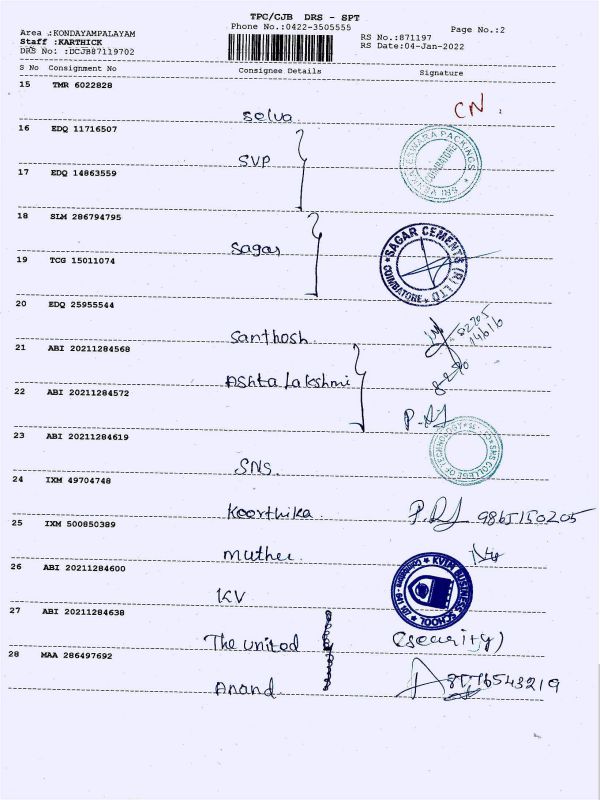 TPC/CJB DRS - SPT
Phone No.:0422-3505555
Page No.:2
Area .:KONDAYAMPALAYAM
Staff :KARTHICK
DRS No: :DCJB87119702
RS No.:871197
RS Date:04-Jan-2022
S No Consignment No Consignee Details Signature
15 TMR 6022828
Selva CN
16 EDQ 11716507
SVP
SRI VENKATESWARA PACKINGS * COIMBATORE *
17 EDQ 14863559
18 SLM 286794795
Sagar
* SAGAR CEMENTS (R) LTD * COIMBATORE
19 TCG 15011074
20 EDQ 25955544
Santhosh
21 ABI 20211284568
Ashta Lakshmi
22 ABI 20211284572
23 ABI 20211284619
SNS
SNS COLLEGE OF TECHNOLOGY
24 IXM 49704748
Keerthika
25 IXM 500850389
Muthu
26 ABI 20211284600
KV
KVIM BUSINESS SCHOOL
27 ABI 20211284638
The united (security)
28 MAA 286497692
Anand